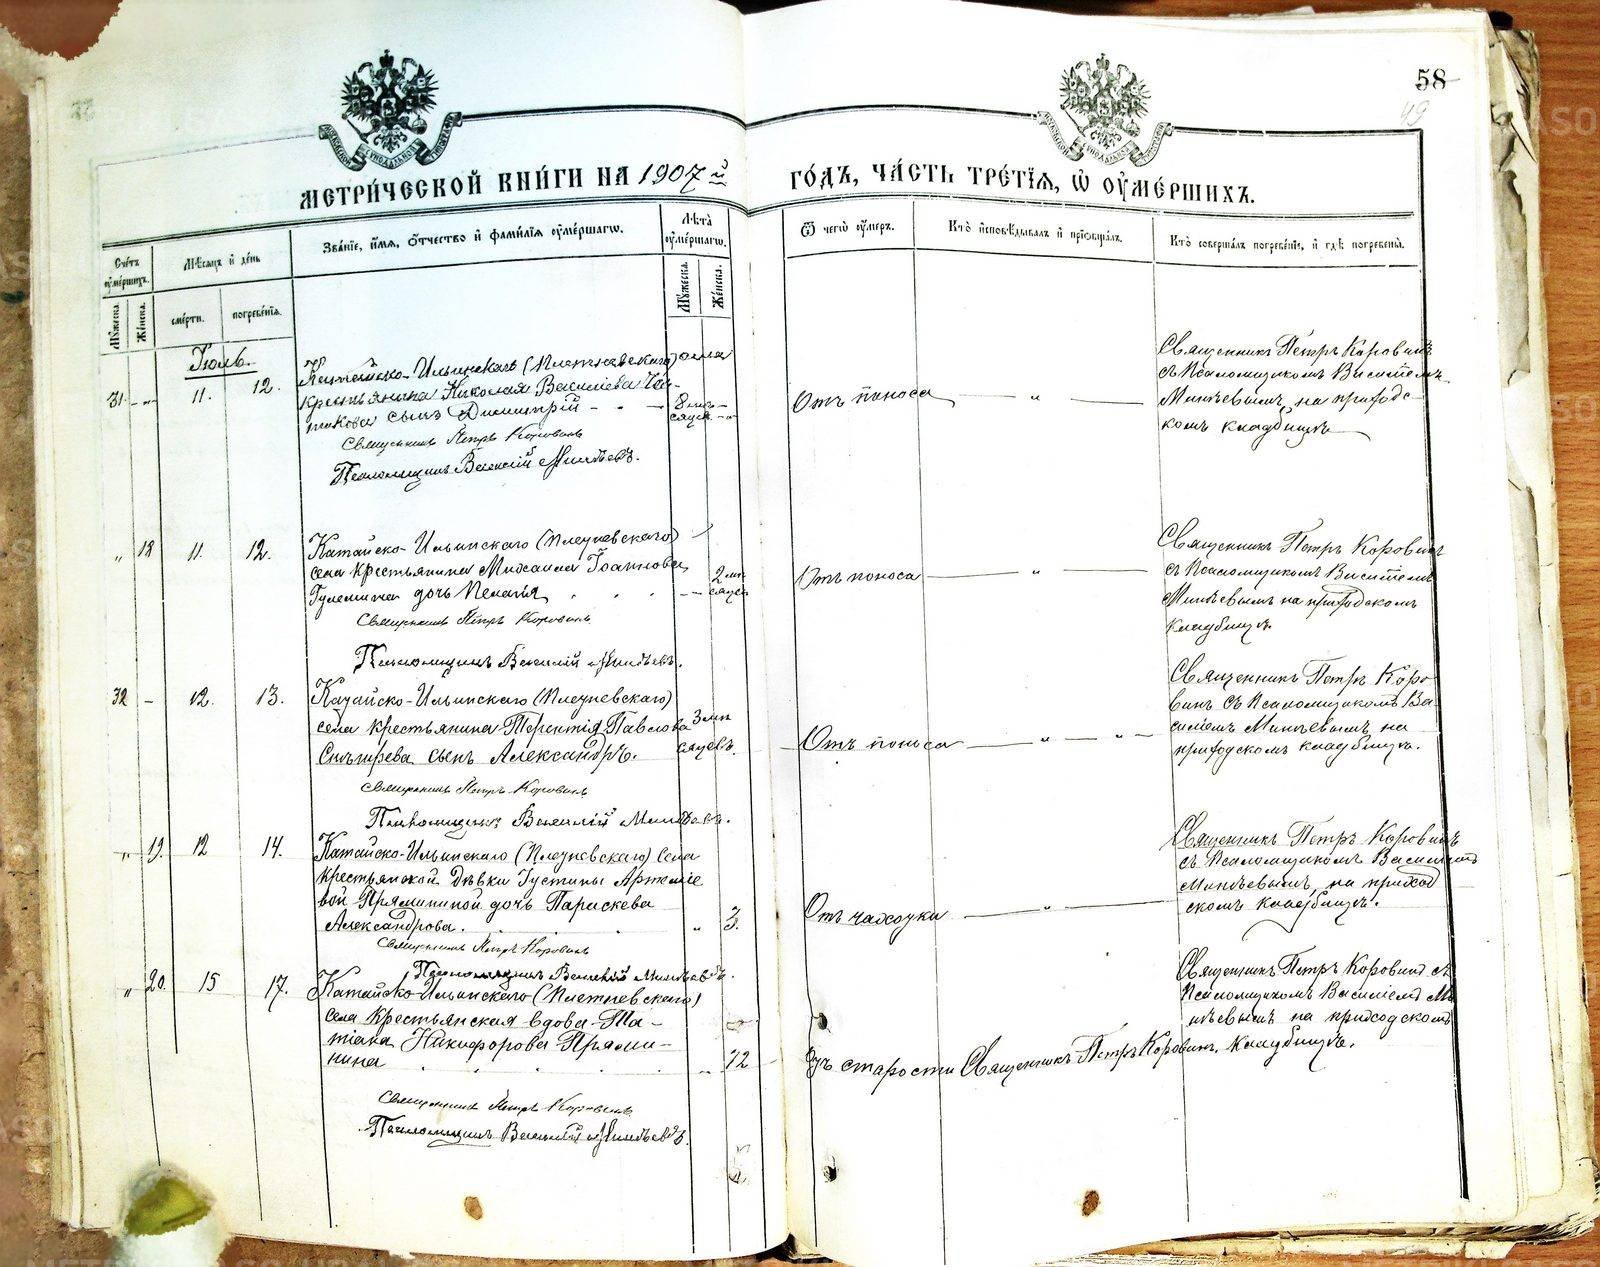 58
49
МЕТРИ́ЧЕСКОЙ КНИ́ГИ НА 1907й ГО́ДЪ, ЧА́СТЬ ТРЕ́ТІЯ, Ѡ҆ ОУ҆МЕ́РШИХЪ.
Сче́тъ оу҆ме́ршихъ.
Мѣ́сяцъ и҆ де́нь
Зва́нїе, и҆́мя, ѻ҆́тчество и҆ фами́лїя оу҆ме́ршагѡ.
Лѣ́та оу҆ме́ршагѡ.
Ѿ чегѡ̀ оу҆́меръ.
Кто̀ и҆сповѣ́дывалъ и҆ прїѡбща́лъ.
Кто̀ соверша́лъ погребе́нїе, и҆ гдѣ̀ погребены̀.
Мꙋ́жеска.
Же́нска.
сме́рти.
погребе́нїя.
Мꙋ́жеска.
Же́нска.
Іюль.
31 - „ - 11. 12.
Катайско-Ильинскаго (Плетневскаго) села
крестьянина Николая Василіева
сынъ Димитрій - - -
8 мѣ-
сяцев.
Священникъ Петръ Коровинъ
Псаломщикъ Василій Минѣевъ.
Отъ поноса
Священникъ Петръ Коровинъ
съ Псаломщикомъ Василіемъ
Минѣевымъ, на приходс-
комъ кладбищѣ
„ 18 11. 12.
Катайско-Ильинскаго (Плетневскаго)
села крестьянина Михаила Іоаннова
дочь Пелагія
2 мѣ
сяцев
Священникъ Петръ Коровинъ
Псаломщикъ Василій Минѣевъ.
Отъ поноса
Священникъ Петръ Коровинъ
съ Псаломщикомъ Василіемъ
Минѣевымъ на приходскомъ
кладбищѣ.
32 - 12. 13.
Катайско-Ильинскаго (Плетневскаго)
села крестьянина Терентія Павлова
Снѣгирева сынъ Александръ.
3 мѣ
сяцевъ.
Священникъ Петръ Коровинъ
Псаломщикъ Василій Минѣевъ.
Отъ поноса
Священникъ Петръ Коро-
винъ съ Псаломщикомъ Ва
силіемъ Минѣевымъ на
приходскомъ кладбищѣ.
„ 19. 12 14.
Катайско-Ильинскаго (Плетневскаго) села
крестьянской дѣвки Іустины Артеміе
вой Прямининой дочь Параскева
Александрова.
„ 3.
Священникъ Петръ Коровинъ
Псаломщикъ Василій Минѣевъ.
Отъ чахотки
Священникъ Петръ Коровинъ
съ Псаломщикомъ Василіемъ
Минѣевымъ, на приход
скомъ кладбищѣ.
„ 20. 15 17.
Катайско-Ильинскаго (Плетневскаго)
села крестьянская вдова Та-
тіана Никифорова Прями-
нина
„ 72
Священникъ Петръ Коровинъ
Псаломщикъ Василій Минѣевъ.
Отъ старости
Священникъ Петръ Коровинъ.
Священникъ Петръ Коровинъ съ
Псаломщикомъ Василіемъ Ми
нѣевымъ на приходскомъ
кладбищѣ.